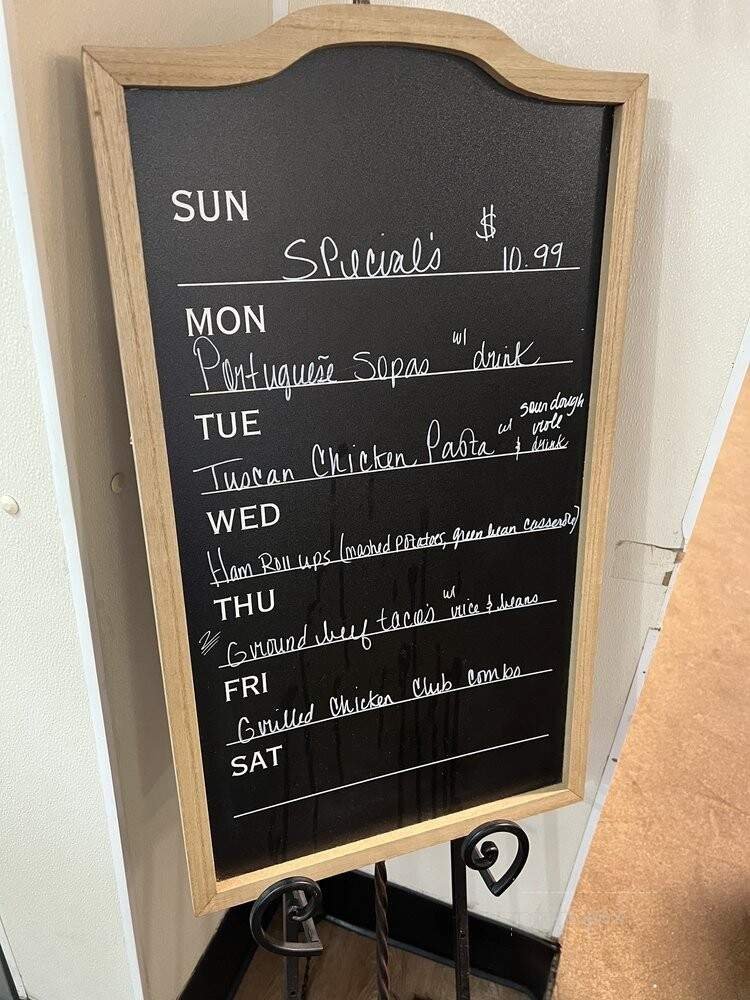 SUN
Special's $ 10.99
MON
Portuguese Sopas w/ drink
TUE
Tuscan Chicken Pasta w/ sourdough roll & drink
WED
Ham Roll ups (mashed potatoes, green bean casserole)
THU
Ground beef tacos w/ rice & beans
FRI
Grilled Chicken Club combo
SAT